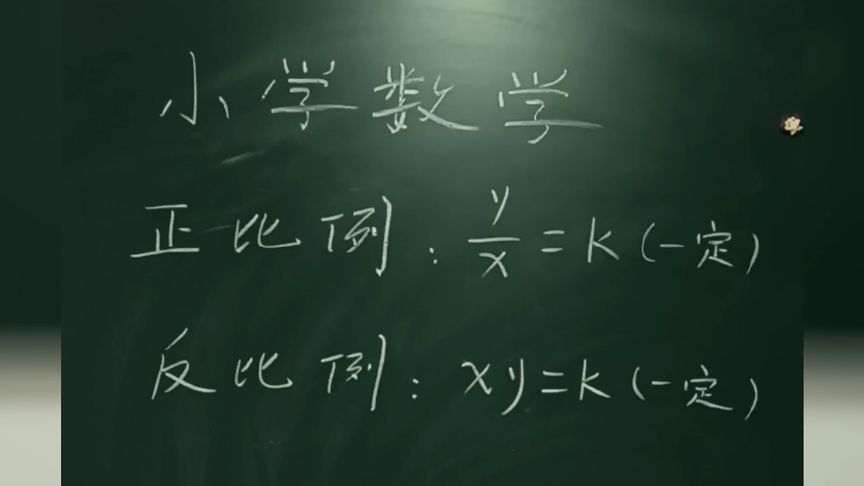 小学数学
正比例：y/x=k(一定)
反比例：xy=k(一定)